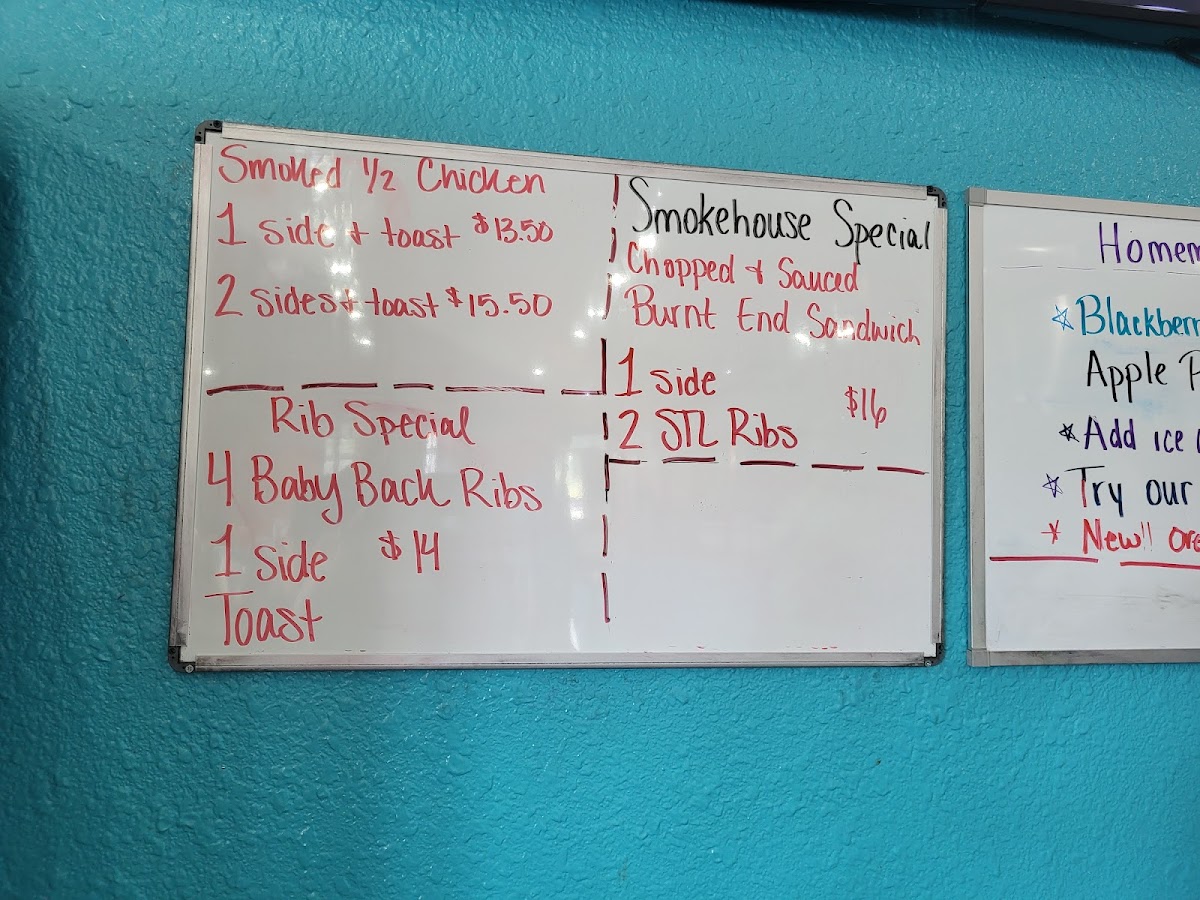 Smoked 1/2 Chicken
1 side + toast $13.50
2 sides + toast $15.50
Rib Special
4 Baby Back Ribs
1 side $14
Toast
Smokehouse Special
Chopped & Sauced
Burnt End Sandwich
1 side
$16
2 STL Ribs
Homem
Blackberr
Apple P
Add ice
Try our
New!! ore